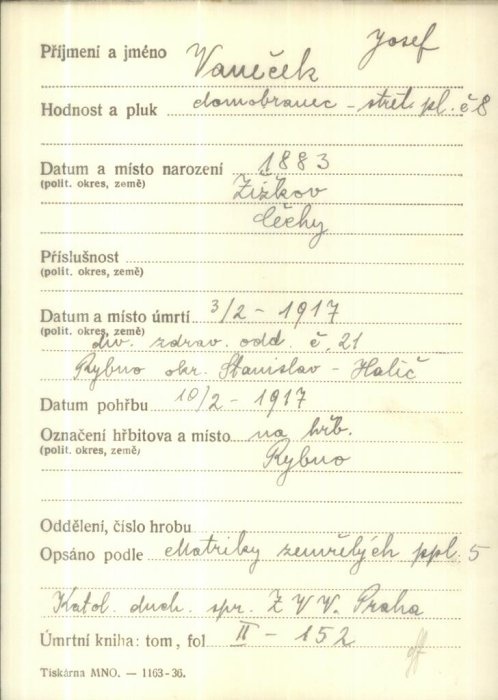 Josef
Příjmení a jméno Vaneček
Hodnost a pluk domobranec - střel. pl. č 8
Datum a místo narození 1883
(polit. okres, země) Žižkov
Čechy
Příslušnost
(polit. okres, země)
Datum a místo úmrtí 3/2 - 1917
(polit. okres, země)
div. zdrav. odd. č. 21
Rybno okr. Stanislav - Halič
Datum pohřbu 10/2 - 1917
Označení hřbitova a místo na hřb.
(polit. okres, země) Rybno
Oddělení, číslo hrobu
Opsáno podle Matriky zemřelých ppl. 5
Katol. duch. spr. Z V V. Praha
Úmrtní kniha: tom, fol II - 152
Tiskárna MNO. — 1163-36.